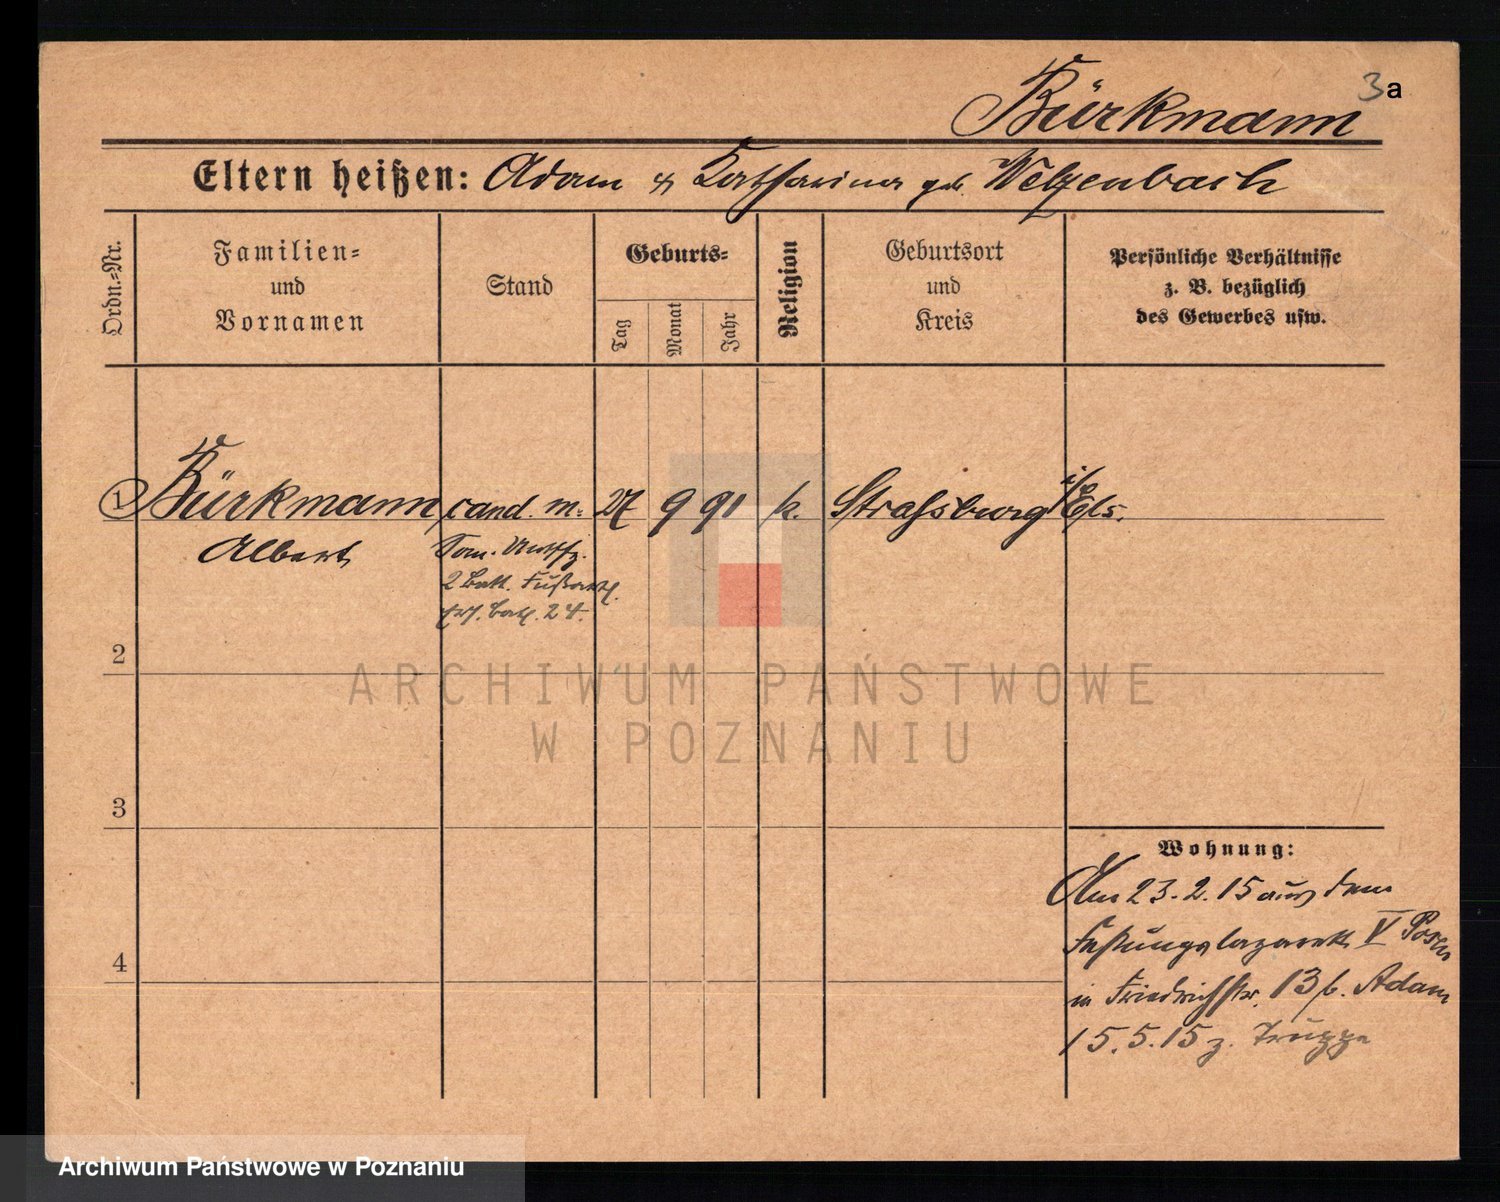 3a
Bürkmann
Eltern heißen: Adam & Katharina geb. Welzenbach
Ordn.=Nr.
Familien=
und
Vornamen
Stand
Geburts=
Tag
Monat
Jahr
Religion
Geburtsort
und
Kreis
Persönliche Verhältnisse
z. B. bezüglich
des Gewerbes usw.
1 Bürkmann cand. m. 27 9 91 k. Straßburg i/Els.
Albert
2 Batt. Fußartl.
Batl. 24.
2
3
4
Wohnung:
Am 23.2.15 aus dem
Festungslazarett V Posen
in Friedrichstr. 13 b. Adam
15.5.15 z. Truppe
ARCHIWUM PAŃSTWOWE
W POZNANIU
Archiwum Państwowe w Poznaniu